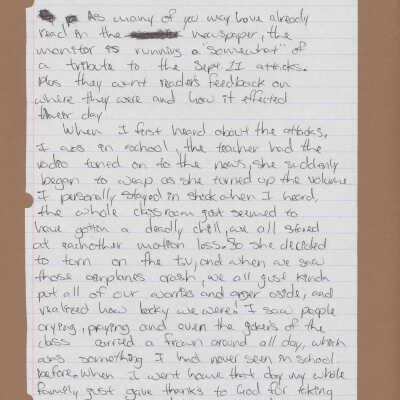 As many of you may have already
read in the newspaper, the
monitor is running a "somewhat" of
a tribute to the Sept. 11 attacks.
Plus they want readers feedback on
where they were and how it effected
their day
When I first heard about the attacks,
I was in school, the teacher had the
radio tuned on to the news, she suddenly
began to weap as she turned up the volume
I personally stayed in shock when I heard,
the whole classroom just seemed to
have gotten a deadly chill, we all stared
at eachother motion less. So she decided
to turn on the T.V, and when we saw
those airplanes crash, we all just kinda
put all of our worries and anger aside, and
realized how lucky we were. I saw people
crying, praying and even the jokers of the
class carried a frown around all day, which
was something I had never seen in school
before. When I went home that day my whole
family just gave thanks to God for taking